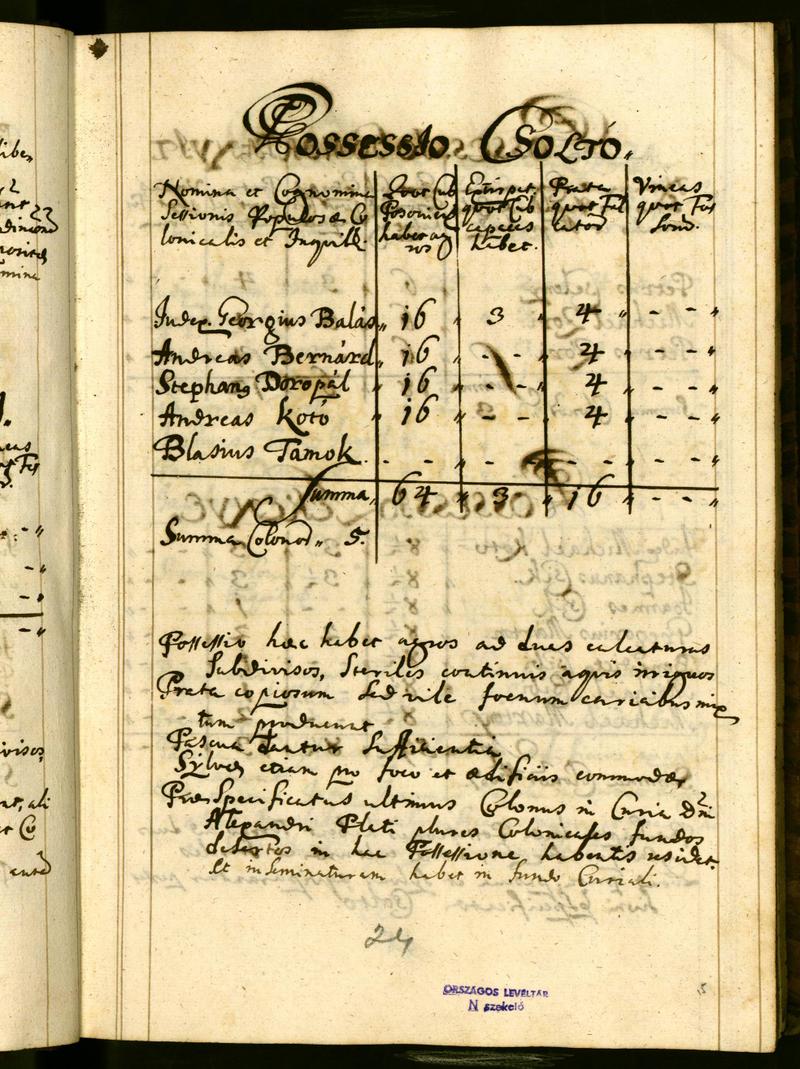 Possessio Csoltó.
Nomina et Cognomina Sessionis Populosae Colonicalis et Inquill.
Quot Cub Posonien habet agros
Extirpat. quot Cub capaces habet.
Prata quot Falcator
Vineas quot Fossor.
Judex Georgius Balás 16 3 4 - -
Andreas Bernárd 16 - - 4 - -
Stephang Doropál 16 - - 4 - -
Andreas Kotó 16 - - 4 - -
Blasius Tamok - - - - - - - -
Summa 64 3 16 - -
Summa Colonor 5.
Possessio haec habet agros ad duas calcaturas
Subdivisos, Steriles continuis aquis irriguos
Prata copiosum sed vile foenum caricibus mix
tum producunt
Pascua dantur Sufficientia
Sylvae etiam pro foco et aedificiis commodae
Praespecificatus ultimus Colonus in Curia Dni
Alexandri Plati plures Colonicales fundos
desertos in hac Possessione habentis residet.
Et inseminaturam habet in fundo Curiali.
24
ORSZÁGOS LEVÉLTÁR
N szekció
5